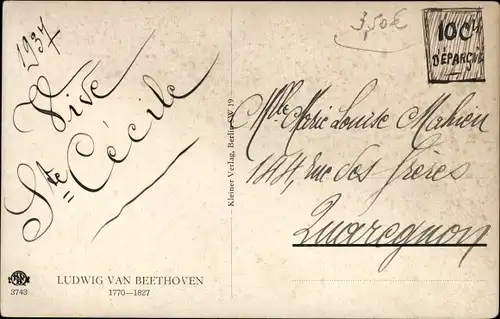 1937
Vive
Ste Cécile
3743
LUDWIG VAN BEETHOVEN
1770—1827
Kleiner Verlag, Berlin SW 19
3,50€
10 Cts
D'ÉPARGNE
Mlle Marie Louise Mahieu
144, rue des Frères
Quaregnon